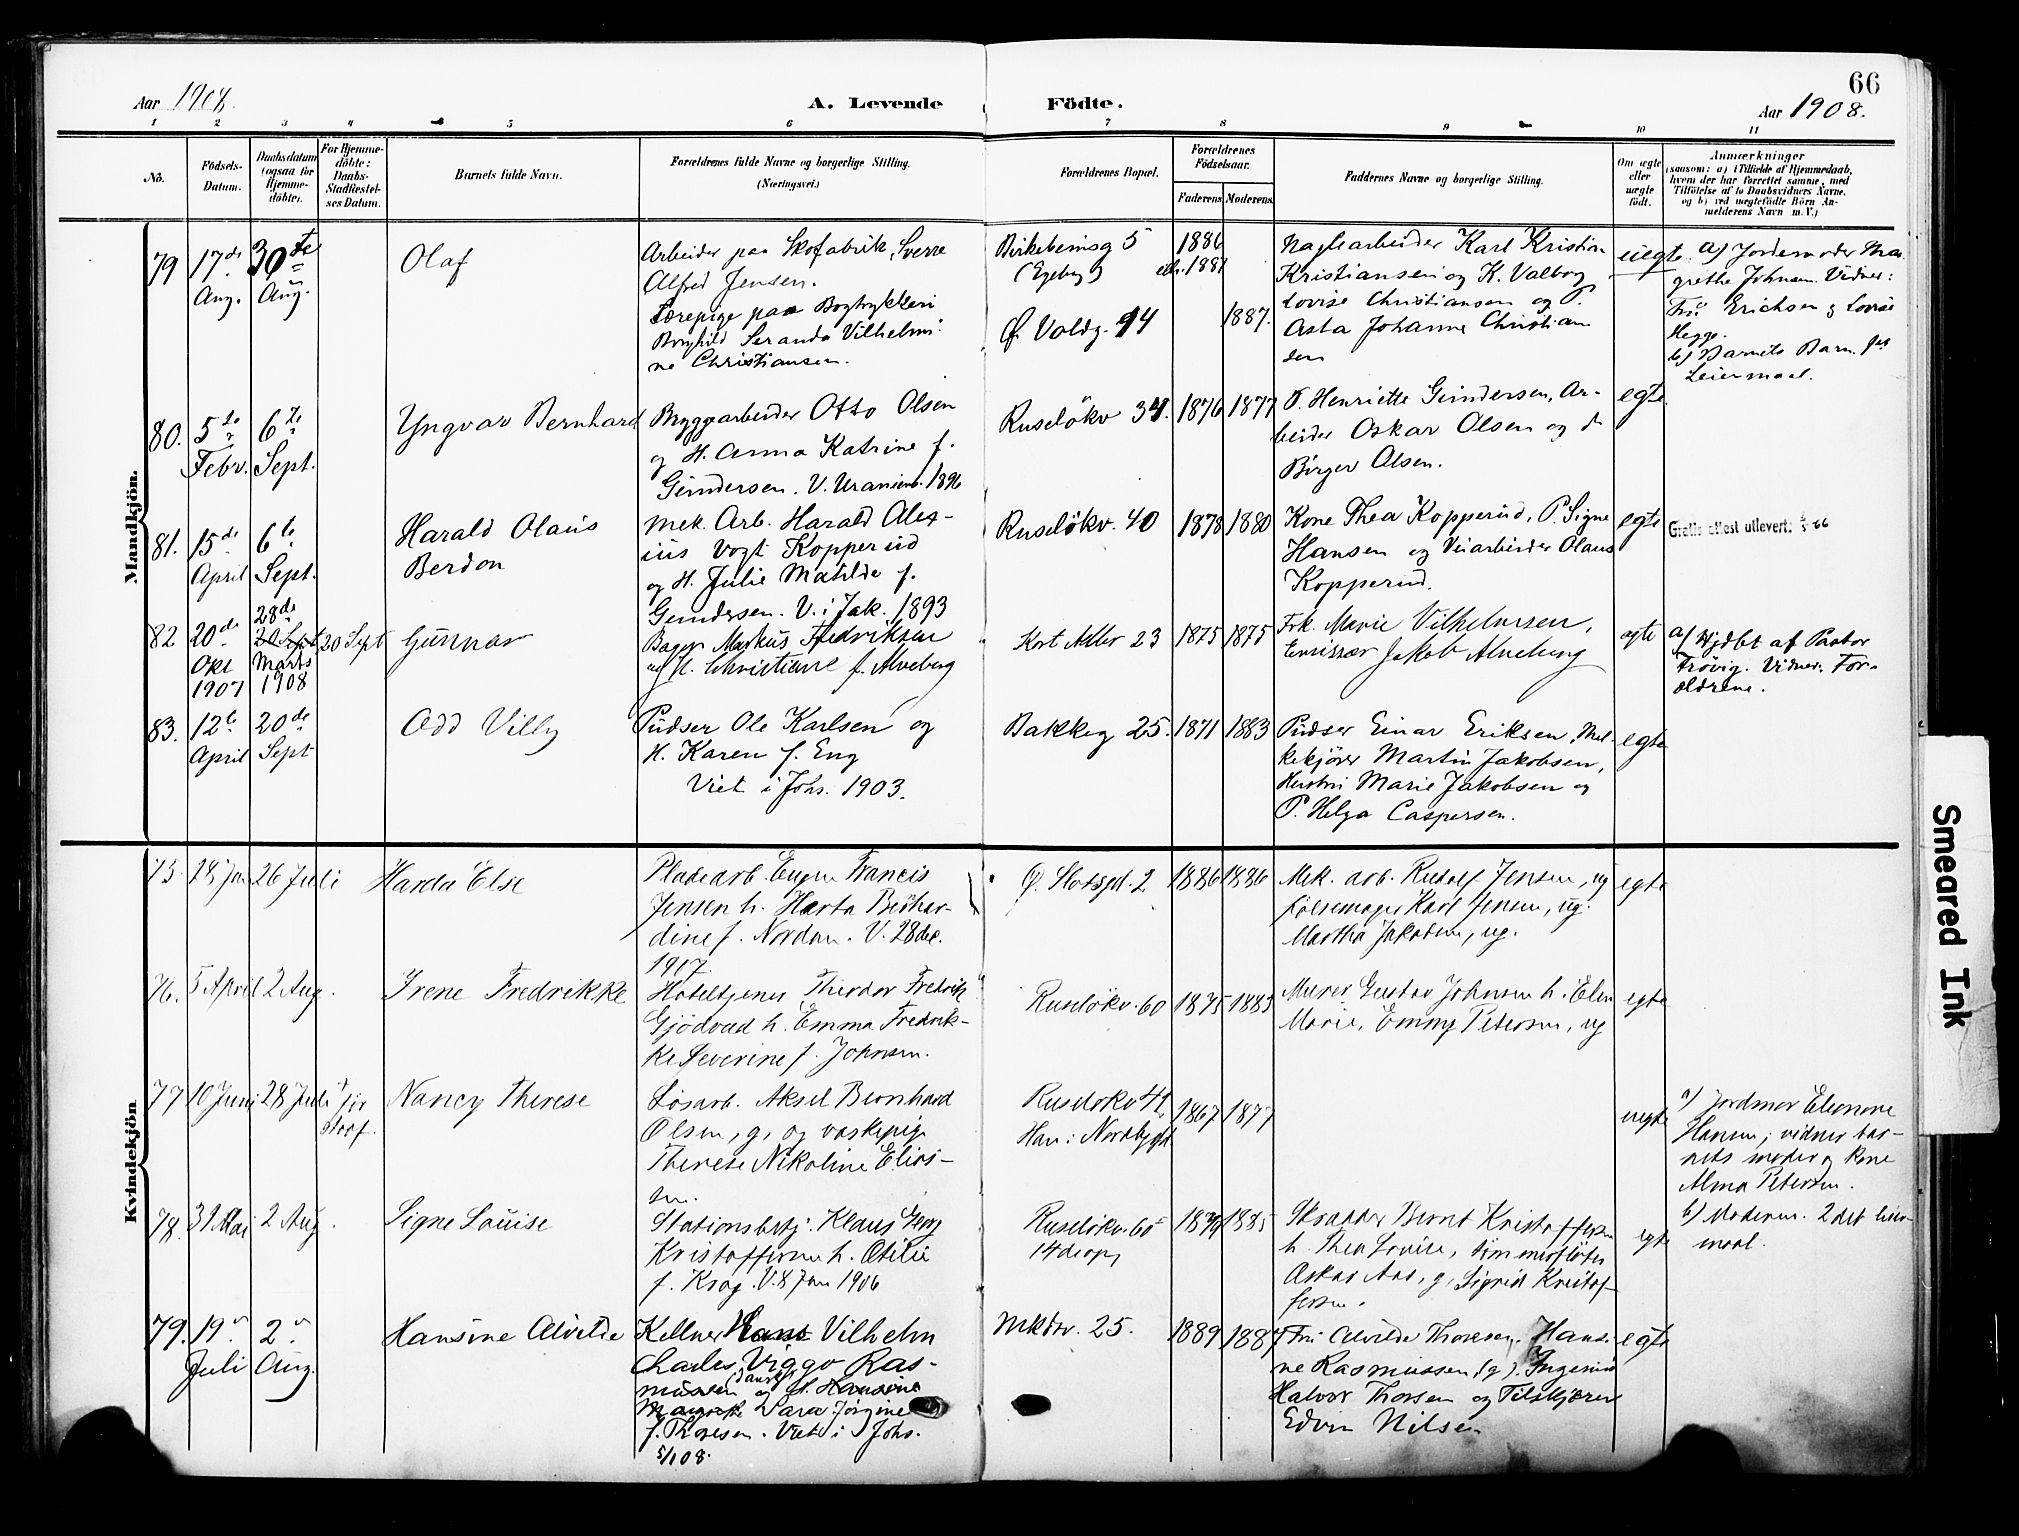 66
Aar 1908.
A. Levende
Födte.
Aar 1908.
1 2 3 4 5 6 7 8 9 10 11
No.
Födsels-
Datum.
Daabsdatum
(ogsaa for
Hjemme-
döbte).
For Hjemme-
döbte:
Daabs-
Stadfæstel-
ses Datum.
Barnets fulde Navn.
Forældrenes fulde Navne og borgerlige Stilling.
(Næringsvei.)
Forældrenes Bopæl.
Forældrenes
Födselsaar.
Faderens
Moderens
Faddernes Navne og borgerlige Stilling.
Om ægte
eller
uægte
født.
Anmærkninger
(saasom: a) i Tilfælde af Hjemmedaab,
hvem der har forrettet samme, med
Tilföielse af to Daabsvidners Navne,
og b) ved uægtefödte Börn An-
melderens Navn m. V.)
Mandkjön.
79
17de
Aug.
30te
Aug.
Olaf
Arbeider paa Skofabrik, Sverre
Alfred Jensen.
Lærepige paa Bogtrykkeri
Borghild Seranda Vilhelmi-
ne Christiansen.
Birkebeinsg 5
(Egeberg)
Ø. Voldg. 94
1886
1887.
Naglearbeider Karl Kristian
Kristiansen og K. Valborg
Lovise Christiansen og P.
Asta Johanne Christian
sen
uegte
a) Jordemoder Mar
grethe Johnsen. Vidner:
Fru Erichsen & Lovise
Hegge.
b) Barnets Barn. for
Leiermaal.
80.
5te
Febr.
6te
Sept.
Yngvar Bernhard
Bryggearbeider Otto Olsen
og H. Anna Katrine f.
Gundersen. V. Uranienb. 1896
Ruseløkv 34.
1876
1877
P. Henriette Gundersen, Ar-
beider Oskar Olsen og do
Birger Olsen.
egte
81.
15de
April
6te
Sept.
Harald Olaus
Berdon
Mek. Arb. Harald Alex-
ius Vogt Kopperud
og H. Julie Matilde f.
Gundersen. V. i Jak. 1893
Ruseløkv. 40
1878
1880
Kone Thea Kopperud, P. Signe
Hansen og Veiarbeider Olaus
Kopperud.
egte
Gratis attest utlevert
82
20de
Okt
1907
28de
20 Sept
Marts
1908
20 Sept
Gunnar
Bager Markus Fredriksen
og H. Christianne f. Alveberg
Kort Adler 23
1875
1875
Frk. Marie Vilhelmsen,
Emissær Jakob Alveberg
ægte
a) Hjdbt af Pastor
Frøvig. Vidner: For-
ældrene.
83.
12te
April
20de
Sept
Odd Villy
Pudser Ole Karlsen og
H. Karen f. Eng
Viet i Johs. 1903.
Bakkeg 25.
1871
1883
Pudser Einar Eriksen, Mel-
kekjører Martin Jakobsen,
Hustru Marie Jakobsen og
P. Helga Caspersen.
egte
Kvindekjön
75
28 Jan
26 Juli
Harda Else
Pladearb. Eugen Francis
Jensen h. Harta Bernhar-
dine f. Nordan. V. 28 dec.
1907
Ø. Slotsgd. 2
1886
1886
Mek. arb. Rudolf Jensen, ug
Pølsemager Karl Jensen, ug.
Martha Jakobsen, ug.
egte
76.
5 April
2 Aug.
Irene Fredrikke
Hoteltjener Theodor Fredrik
Gjødvad h. Emma Fredrik-
ke Severine f. Johnsen.
Ruseløkv. 60
1875
1883
Murer Gustav Johnsen h. Elen
Marie, Emmy Petersen, ug
egte
77
10 Juni
28 Juli
Nancy Therese
Løsarb. Aksel Bernhard
Olsen, g, og vaskepige
Therese Nikoline Elias-
sen.
Ruseløkv 42,
Han: Nordbygd
1867
1877
uegte
a) Jordmor Eleonore
Hansen; vidner bar-
nets moder og Kone
Alma Petersen.
b) Moderen. 2det leier-
maal.
78.
31 Mai
2 Aug.
Signe Louise
Stationsbetj. Klaus Georg
Kristoffersen h. Otilie
f. Krog. V. 8 Jan 1906
Ruseløkv. 60
14de opg,
1879
1885
Skradder Bernt Kristoffersen
h. Thea Lovise, tømmerfløter
Oskar Aas, g, Sigrid Kristof-
fersen.
egte
79.
19de
Juli
2de
Aug.
Hansine Alvilde
Kellner Hans Vilhelm
Charles Viggo Ras-
mussen (dansk) og H. Hansine
Margrete Sara Jørgine
f. Thoresen. Viet i Johs.
5/1 08.
Mkdv. 25.
1889
1887
Fru Alvilde Thoresen. Hansi-
ne Rasmussen (g). Ingeniør
Halvor Thoresen og Tilskjærer
Edvin Nilsen
egte
Smeared Ink